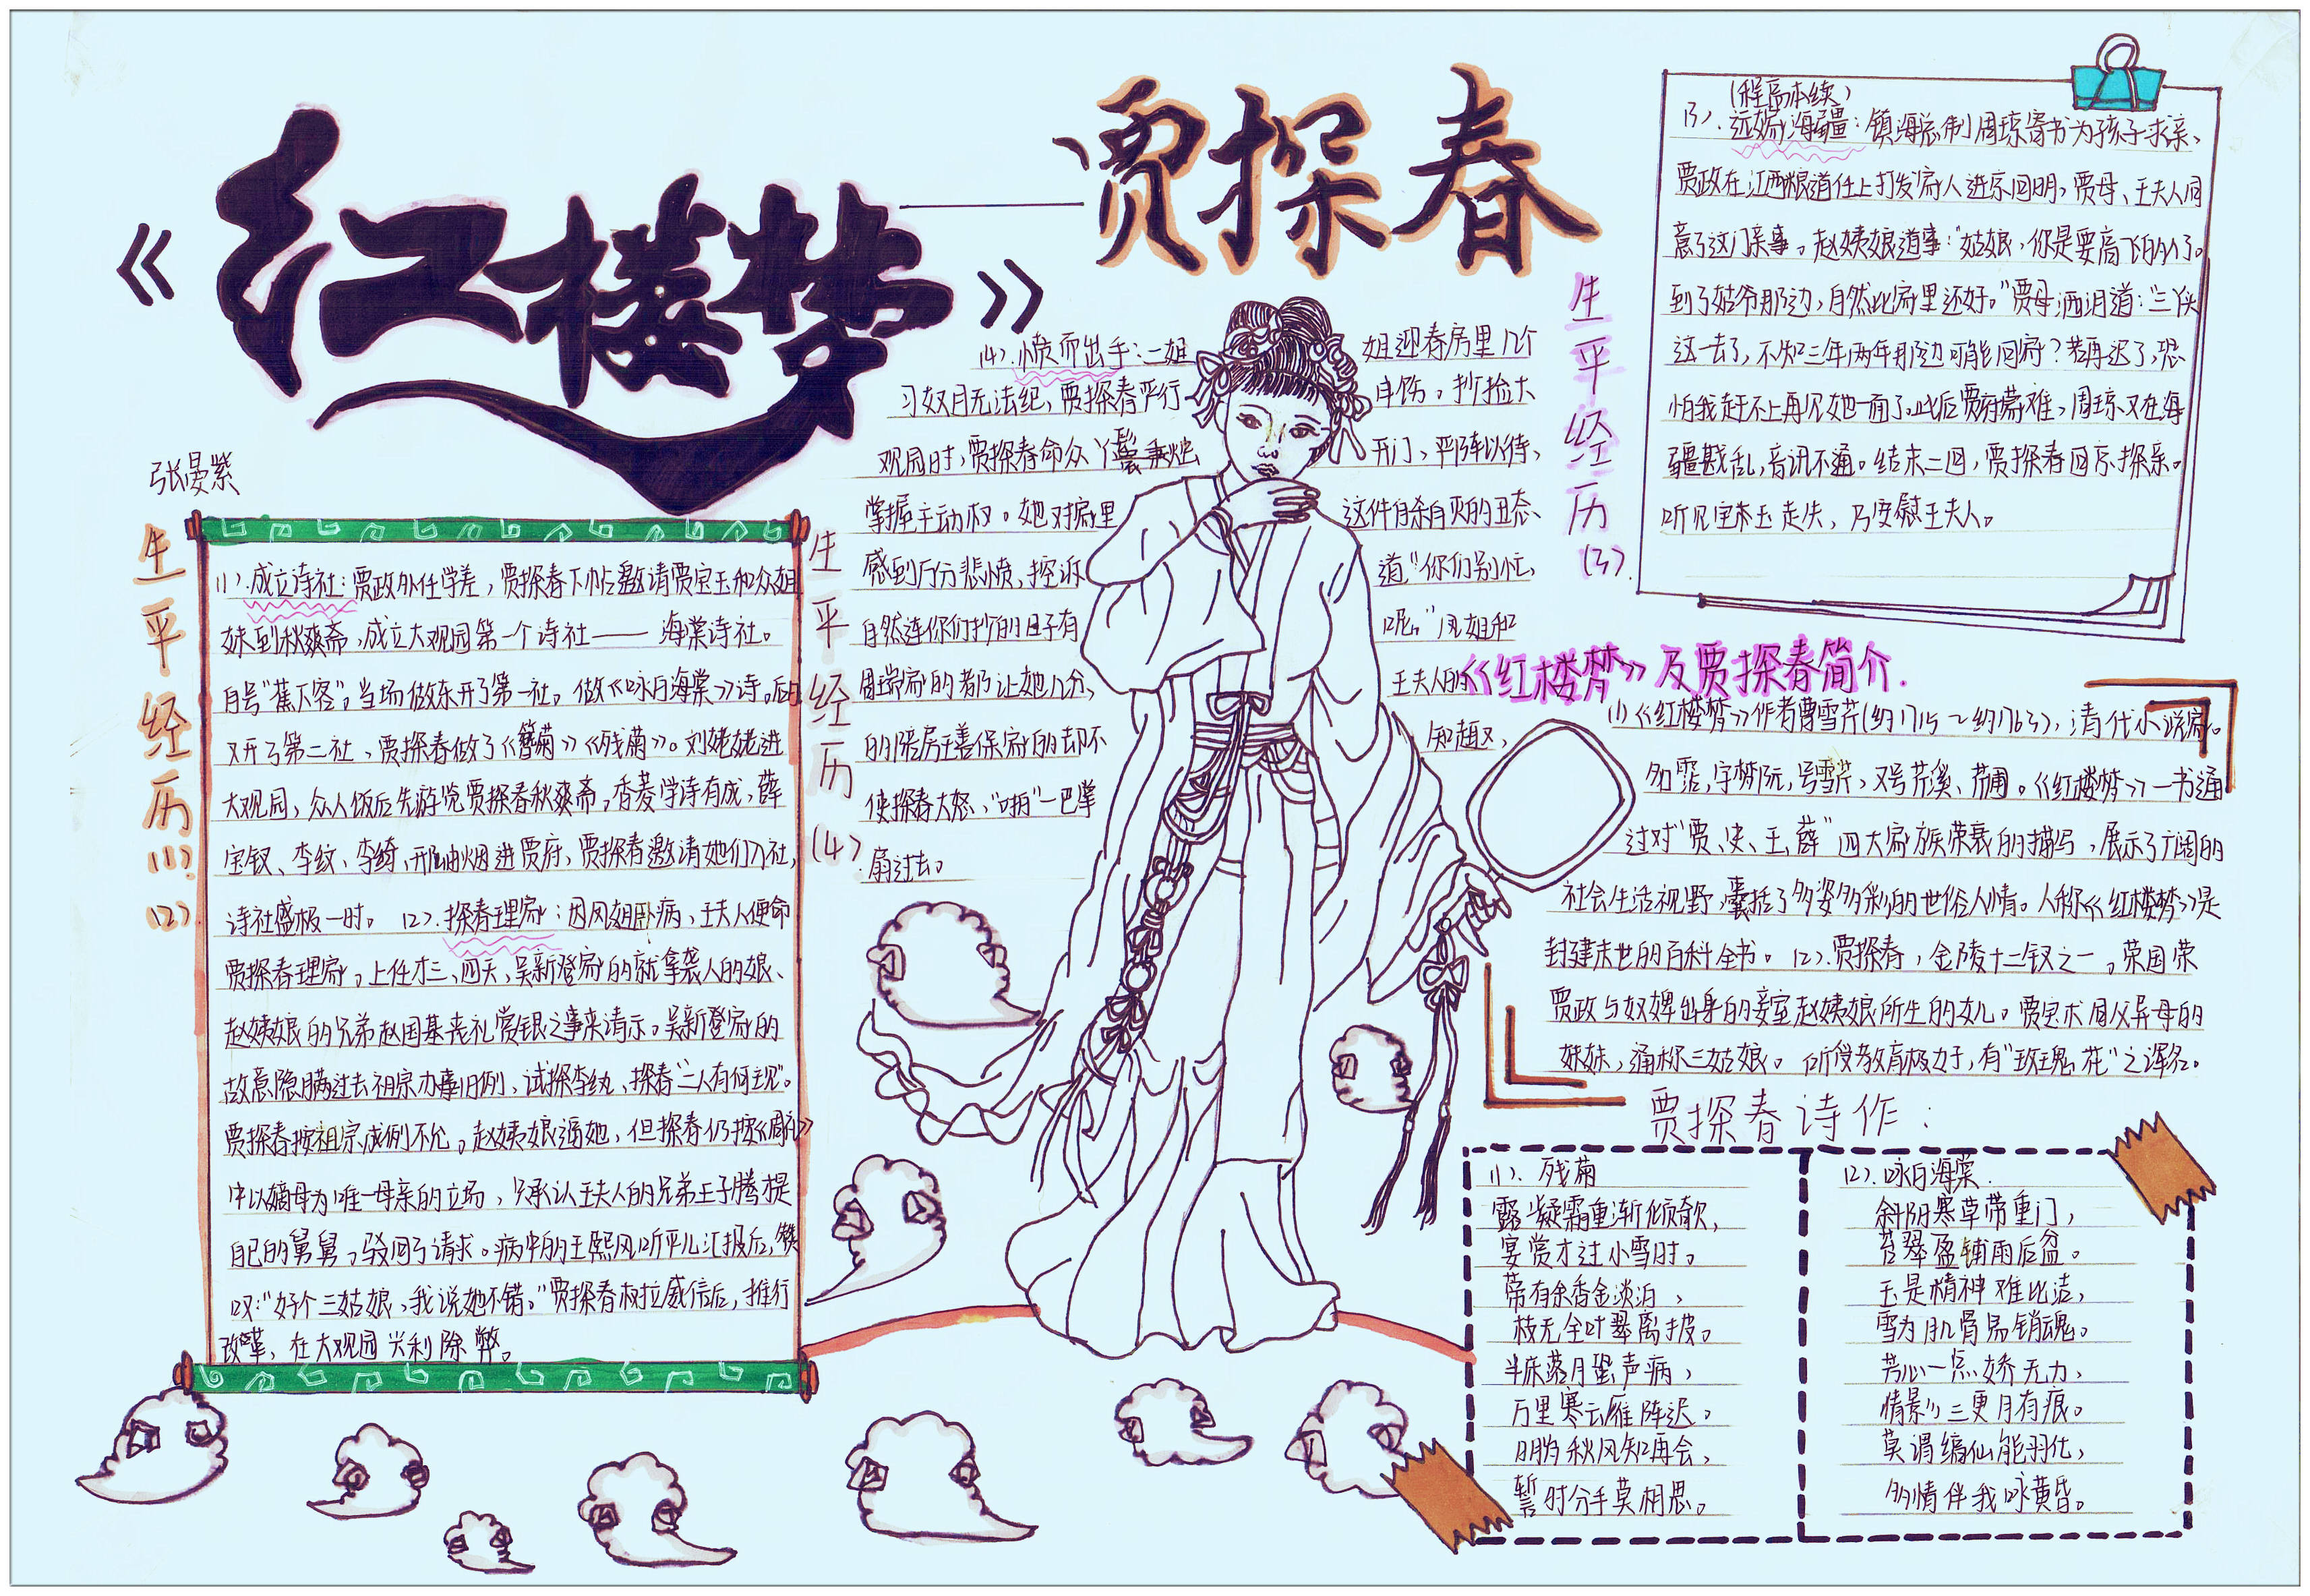 《红楼梦》——贾探春
张晏紫
生平经历(1)(2)
(1).成立诗社:贾政外任学差,贾探春下帖邀请贾宝玉和众姐
妹到秋爽斋,成立大观园第一个诗社——海棠诗社。
自号“蕉下客”。当场做东开了第一社。做《咏白海棠》诗。后
又开了第二社,贾探春做了《簪菊》《残菊》。刘姥姥进
大观园,众人饭后先游览贾探春秋爽斋。香菱学诗有成,薛
宝钗、李纹、李绮、邢岫烟进贾府,贾探春邀请她们入社,
诗社盛极一时。(2).探春理家:因凤姐卧病,王夫人便命
贾探春理家。上任才三、四天,吴新登家的就拿袭人的娘、
赵姨娘的兄弟赵国基丧礼赏银之事来请示。吴新登家的
故意隐瞒过去祖宗办事旧例,试探李纨、探春“二人有何主见”。
贾探春按祖宗成例不允。赵姨娘逼她,但探春仍按《周礼》
中以嫡母为唯一母亲的立场,只承认王夫人的兄弟王子腾提
自己的舅舅,驳回了请求。病中的王熙凤听平儿汇报后,赞
叹:“好个三姑娘,我说她不错。”贾探春树拉威信后,推行
改革,在大观园兴利除弊。
生平经历(4)
(4).愤而出手:二姐 姐迎春房里几个
刁奴目无法纪,贾探春严行 自饬。抄捡大
观园时,贾探春命众丫鬟秉烛 开门,严阵以待,
掌握主动权。她对家里 这件自杀自灭的丑态、
感到万分悲愤,控诉 道“你们别忙,
自然连你们抄的日子有 呢。”凤姐和
周瑞家的都让她几分, 王夫人的
的陪房王善保家的却不 知趣,
使探春大怒,“啪”一巴掌
扇过去。
生平经历(3).
(程高本续)
(3).远嫁海疆:镇海总制周琼寄书为孩子求亲,
贾政在江西粮道任上打发家人进京回明,贾母、王夫人同
意了这门亲事。赵姨娘道事:“姑娘,你是要高飞的人了。
到了姑爷那边,自然比家里还好。”贾母洒泪道:“三丫头
这一去了,不知三年两年那边可能回家?若再迟了,恐
怕我赶不上再见她一面了。此后贾府蒙难,周琼又在海
疆戡乱,音讯不通。结末二回,贾探春回京探亲。
听见宝玉走失,乃安慰王夫人。
《红楼梦》及贾探春简介.
(1)《红楼梦》作者曹雪芹(约1715~约1763),清代小说家。
名霑,字梦阮,号雪芹,又号芹溪、芹圃。《红楼梦》一书通
过对“贾、史、王、薛”四大家族荣衰的描写,展示了广阔的
社会生活视野,囊括了多姿多彩的世俗人情。人称《红楼梦》是
封建末世的百科全书。(2).贾探春,金陵十二钗之一。荣国荣
贾政与奴婢出身的妾室赵姨娘所生的女儿。贾宝玉同父异母的
妹妹,通称三姑娘。所受教育极好,有“玫瑰花”之诨名。
贾探春诗作:
(1).残菊
露凝霜重渐倾欹,
宴赏才过小雪时。
蒂有余香金淡泊,
枝无全叶翠离披。
半床落月蛩声病,
万里寒云雁阵迟。
明岁秋风知再会,
暂时分手莫相思。
(2).咏白海棠.
斜阳寒草带重门,
苔翠盈铺雨后盆。
玉是精神难比洁,
雪为肌骨易销魂。
芳心一点娇无力,
倩影三更月有痕。
莫谓缟仙能羽化,
多情伴我咏黄昏。